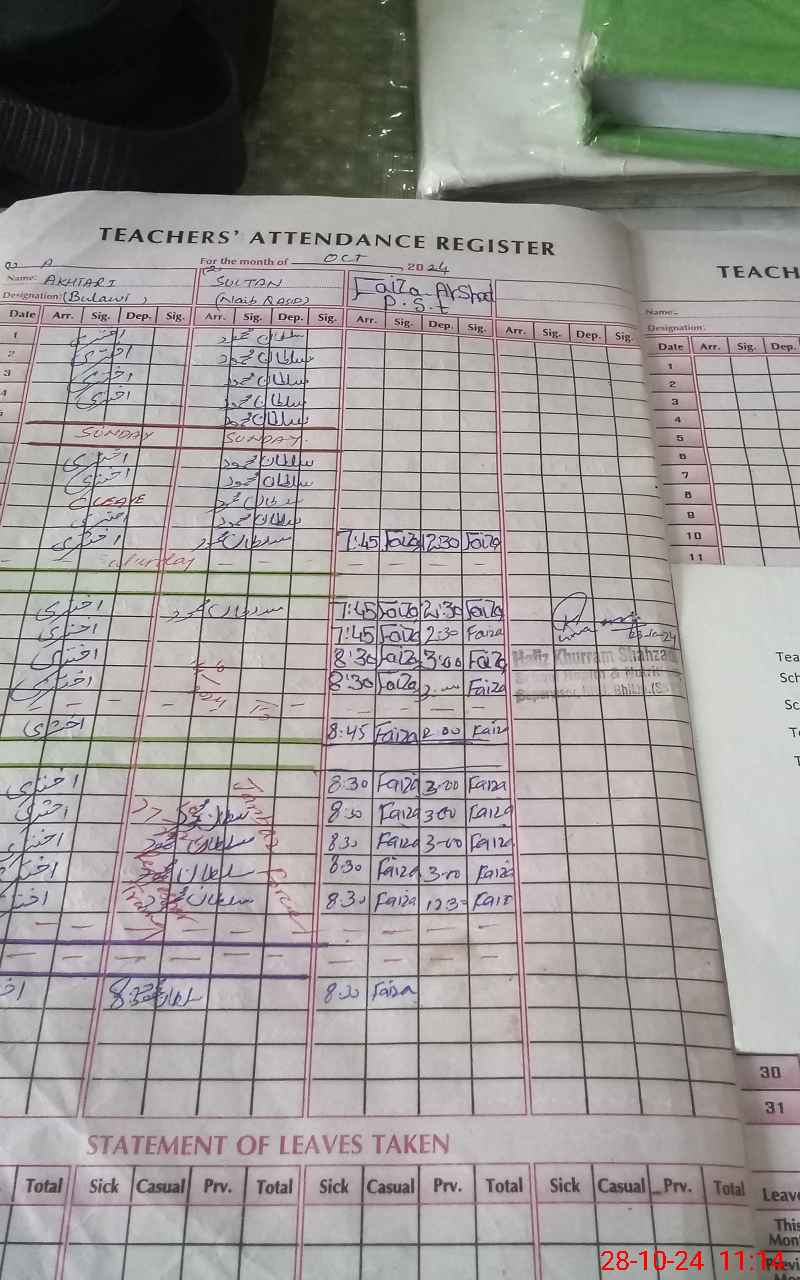 TEACHERS' ATTENDANCE REGISTER
For the month of OCT 2024
Name: AKHTARI SULTAN Faiza Arshad
Designation: (Bulawi) (Naib Qasid) P.S.T
Date Arr. Sig. Dep. Sig. Arr. Sig. Dep. Sig. Arr. Sig. Dep. Sig. Arr. Sig. Dep. Sig.
1 اختری سلطان محمود
2 اختری سلطان محمود
3 اختری سلطان محمود
4 اختری سلطان محمود
سلطان محمود
SUNDAY SUNDAY.
اختری سلطان محمود
اختری سلطان محمود
LEAVE سلطان محمود
اختری سلطان محمود
اختری سلطان محمود 7:45 Faiza 12:30 Faiza
Saturday
اختری سلطان محمود 7:45 Faiza 2:30 Faiza
اختری 7:45 Faiza 2:30 Faiza
اختری 8:30 Faiza 3:00 Faiza
Hafiz Khurram Shahzad
School Health & Nutrition
اختری 8:30 Faiza Faiza
Supervisor
اختری 8:45 Faiza 2:00 Faiza
اختری 8:30 Faiza 3:00 Faiza
اختری سلطان محمود 8:30 Faiza 3:00 Faiza
اختری سلطان محمود 8:30 Faiza 3-00 Faiza
اختری سلطان محمود 8:30 Faiza 3-00 Faiza
اختری سلطان محمود 8:30 Faiza 123 Faiza
8:30 سلطان 8:30 Faiza
STATEMENT OF LEAVES TAKEN
Total Sick Casual Prv. Total Sick Casual Prv. Total Sick Casual Prv. Total
TEACH
Name:
Designation:
Date Arr. Sig. Dep.
1
2
3
4
5
6
7
8
9
10
11
Tea
Sch
Sc
Te
T
30
31
Leave
This
Mon
Previ
28-10-24 11:14